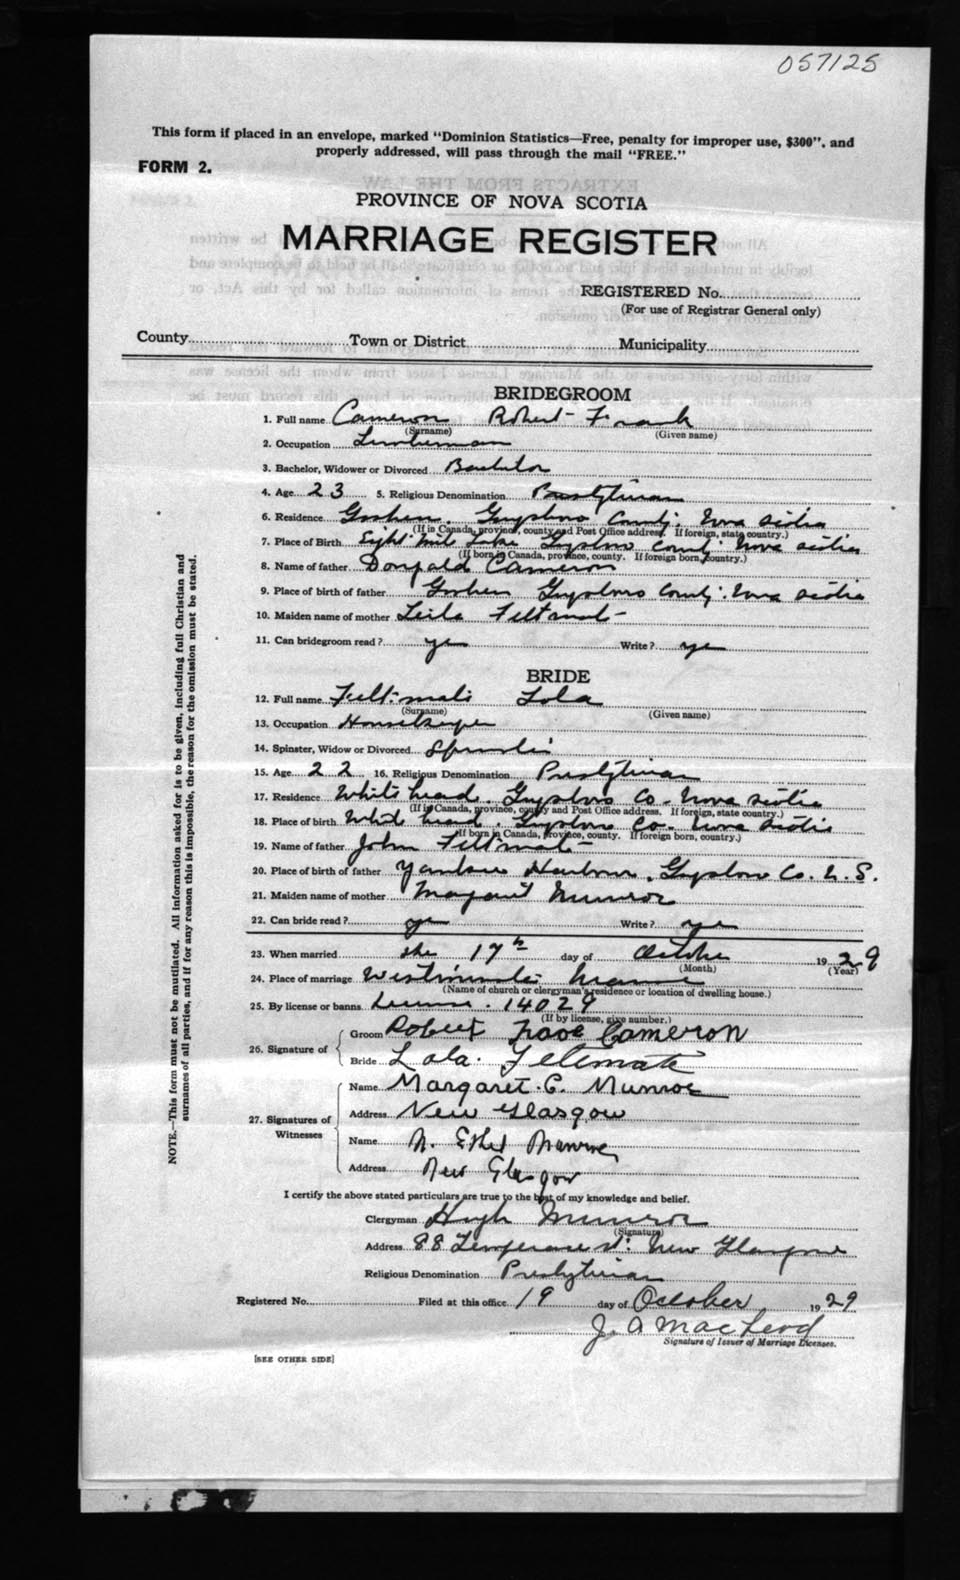 057125
This form if placed in an envelope, marked "Dominion Statistics—Free, penalty for improper use, $300", and
properly addressed, will pass through the mail "FREE."
FORM 2.
PROVINCE OF NOVA SCOTIA
MARRIAGE REGISTER
REGISTERED No.
(For use of Registrar General only)
County Town or District Municipality
BRIDEGROOM
1. Full name Cameron Robert Frank
(Surname) (Given name)
2. Occupation Lumberman
3. Bachelor, Widower or Divorced Bachelor
4. Age 23 5. Religious Denomination Presbyterian
6. Residence Goshen, Guysboro County, Nova Scotia
(If in Canada, province, county and Post Office address. If foreign, state country.)
7. Place of Birth Eight Mile Lake Guysboro County Nova Scotia
(If born in Canada, province, county. If foreign born, country.)
8. Name of father Cameron
9. Place of birth of father Goshen Guysboro County, Nova Scotia
10. Maiden name of mother Leila Feltmate
11. Can bridegroom read? yes Write? yes
BRIDE
12. Full name Feltmate Lola
(Surname) (Given name)
13. Occupation Housekeeper
14. Spinster, Widow or Divorced Spinster
15. Age 22 16. Religious Denomination Presbyterian
17. Residence White head, Guysboro Co. Nova Scotia
(If in Canada, province, county and Post Office address. If foreign, state country.)
18. Place of birth White head, Guysboro Co. Nova Scotia
(If born in Canada, province, county. If foreign born, country.)
19. Name of father John Feltmate
20. Place of birth of father Yankee Harbour, Guysboro Co. N. S.
21. Maiden name of mother Margaret Munroe
22. Can bride read? yes Write? yes
23. When married the 17th day of October 1929
(Month) (Year)
24. Place of marriage Westminster Manse
(Name of church or clergyman's residence or location of dwelling house.)
25. By license or banns License. 14029
(If by license, give number.)
26. Signature of
Groom Robert Cameron
Bride Lola Feltmate
27. Signatures of Witnesses
Name Margaret C. Munroe
Address New Glasgow
Name N. Ethel Munroe
Address New Glasgow
I certify the above stated particulars are true to the best of my knowledge and belief.
Clergyman Hugh Munroe
(Signature)
Address 88 Temperance St. New Glasgow
Religious Denomination Presbyterian
Registered No. Filed at this office 19 day of October 1929
J. A MacLeod
Signature of Issuer of Marriage Licenses.
[SEE OTHER SIDE]
NOTE.—This form must not be mutilated. All information asked for is to be given, including full Christian and
surnames of all parties, and if for any reason this is impossible, the reason for the omission must be stated.